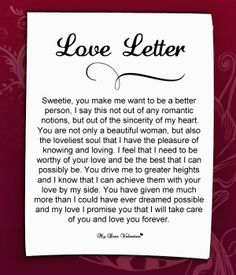 Love Letter
Sweetie, you make me want to be a better
person, I say this not out of any romantic
notions, but out of the sincerity of my heart.
You are not only a beautiful woman, but also
the loveliest soul that I have the pleasure of
knowing and loving. I feel that I need to be
worthy of your love and be the best that I can
possibly be. You drive me to greater heights
and I know that I can achieve them with your
love by my side. You have given me much
more than I could have ever dreamed possible
and my love I promise you that I will take care
of you and love you forever.
My Dear Valentine